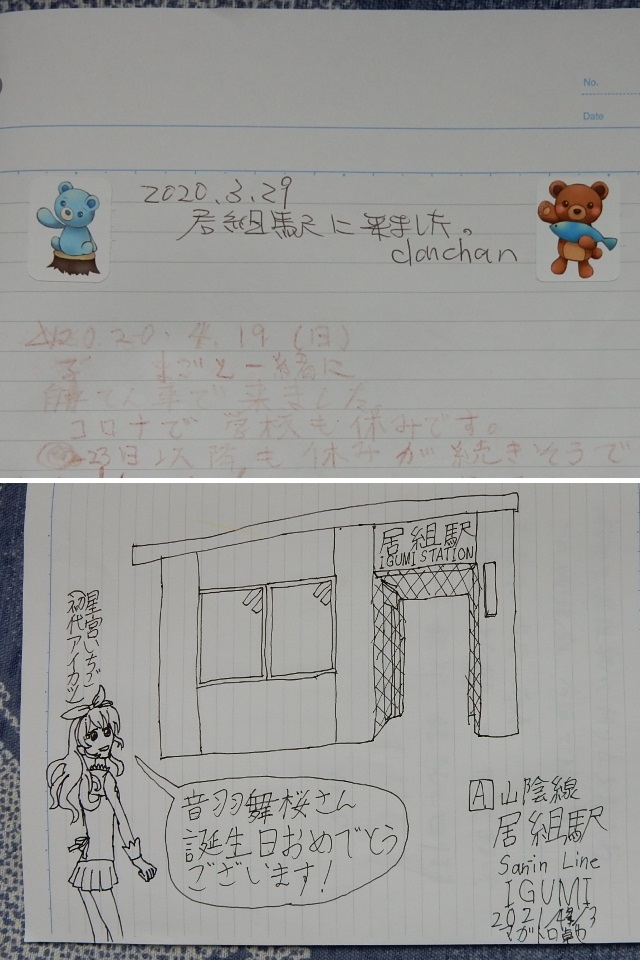 No.
Date
2020.3.29
居組駅に来ました。
clanchan
2020.4.19(日)
一緒に
自転車で来ました。
コロナで学校も休みです。
23日以降も休みが続きそうで
居組駅
IGUMI STATION
星宮いちご
初代アイカツ
音羽舞桜さん
誕生日おめでとう
ございます!
A 山陰線
居組駅
San-in Line
IGUMI